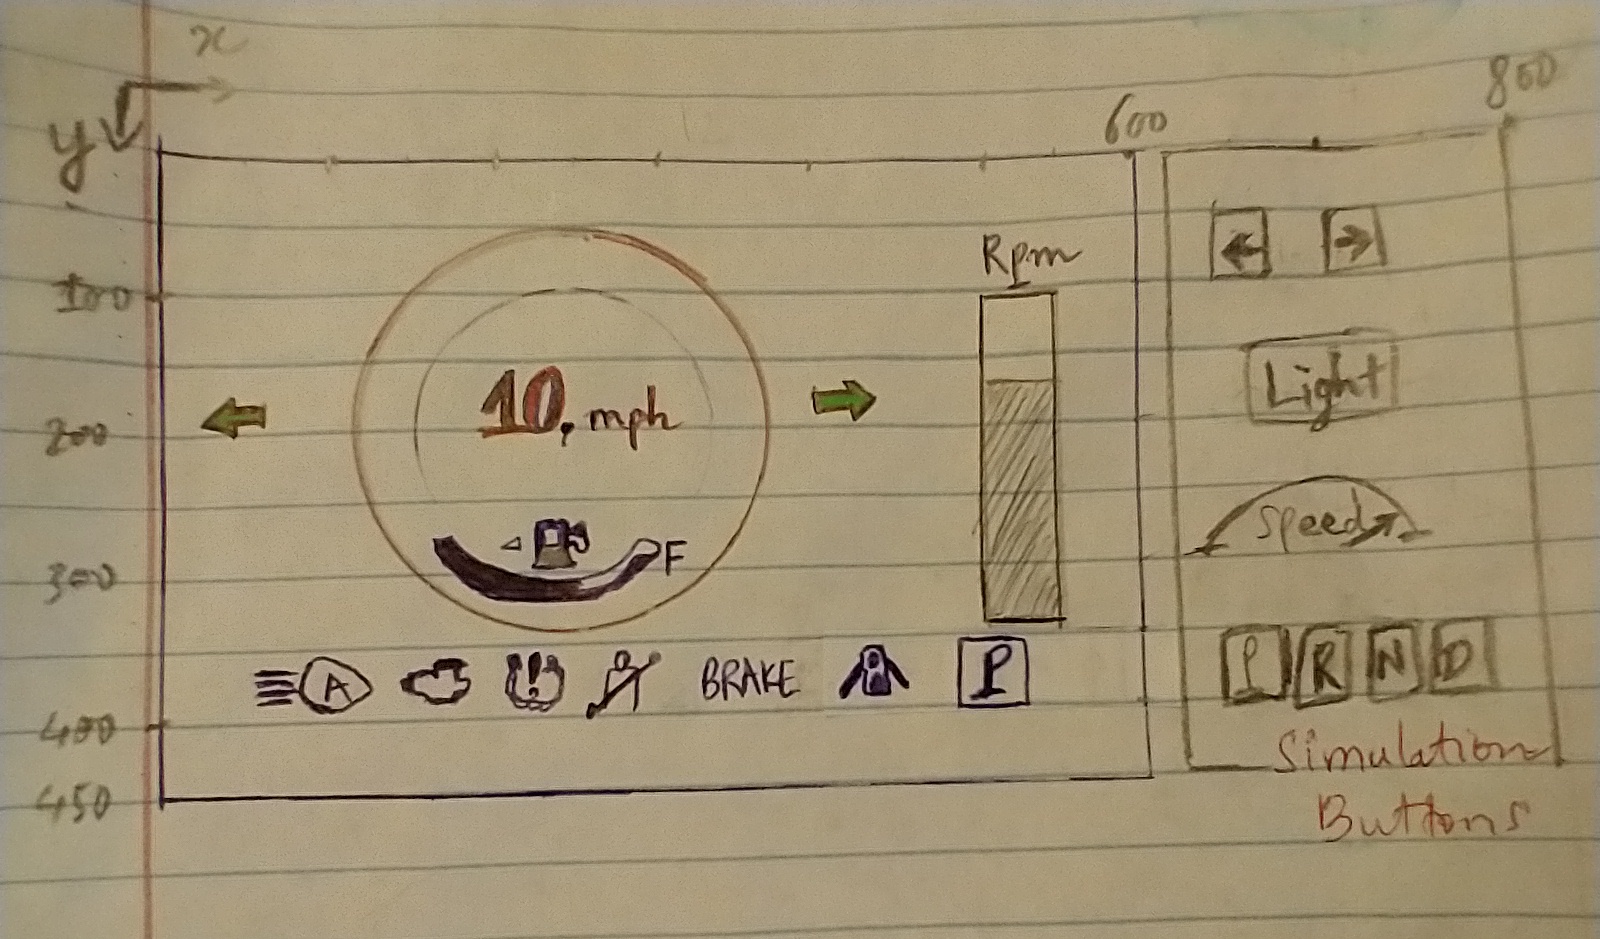 x
y
600
800
Rpm
100
200
300
400
450
10 mph
F
A
BRAKE
P
Light
Speed
P R N D
Simulation
Buttons